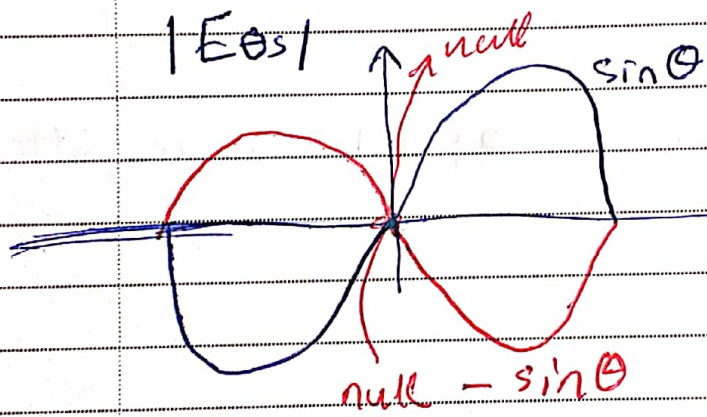 |Eθs|
null
sinθ
null - sinθ